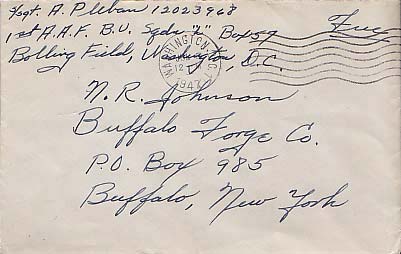 S/Sgt. A. Pleban 12023968
1st A.A.F. B.U. Sqdn "L" Box 57
Bolling Field, Washington, D.C.
Free
WASHINGTON
12
1947
N. R. Johnson
Buffalo Forge Co.
P.O. Box 985
Buffalo, New York